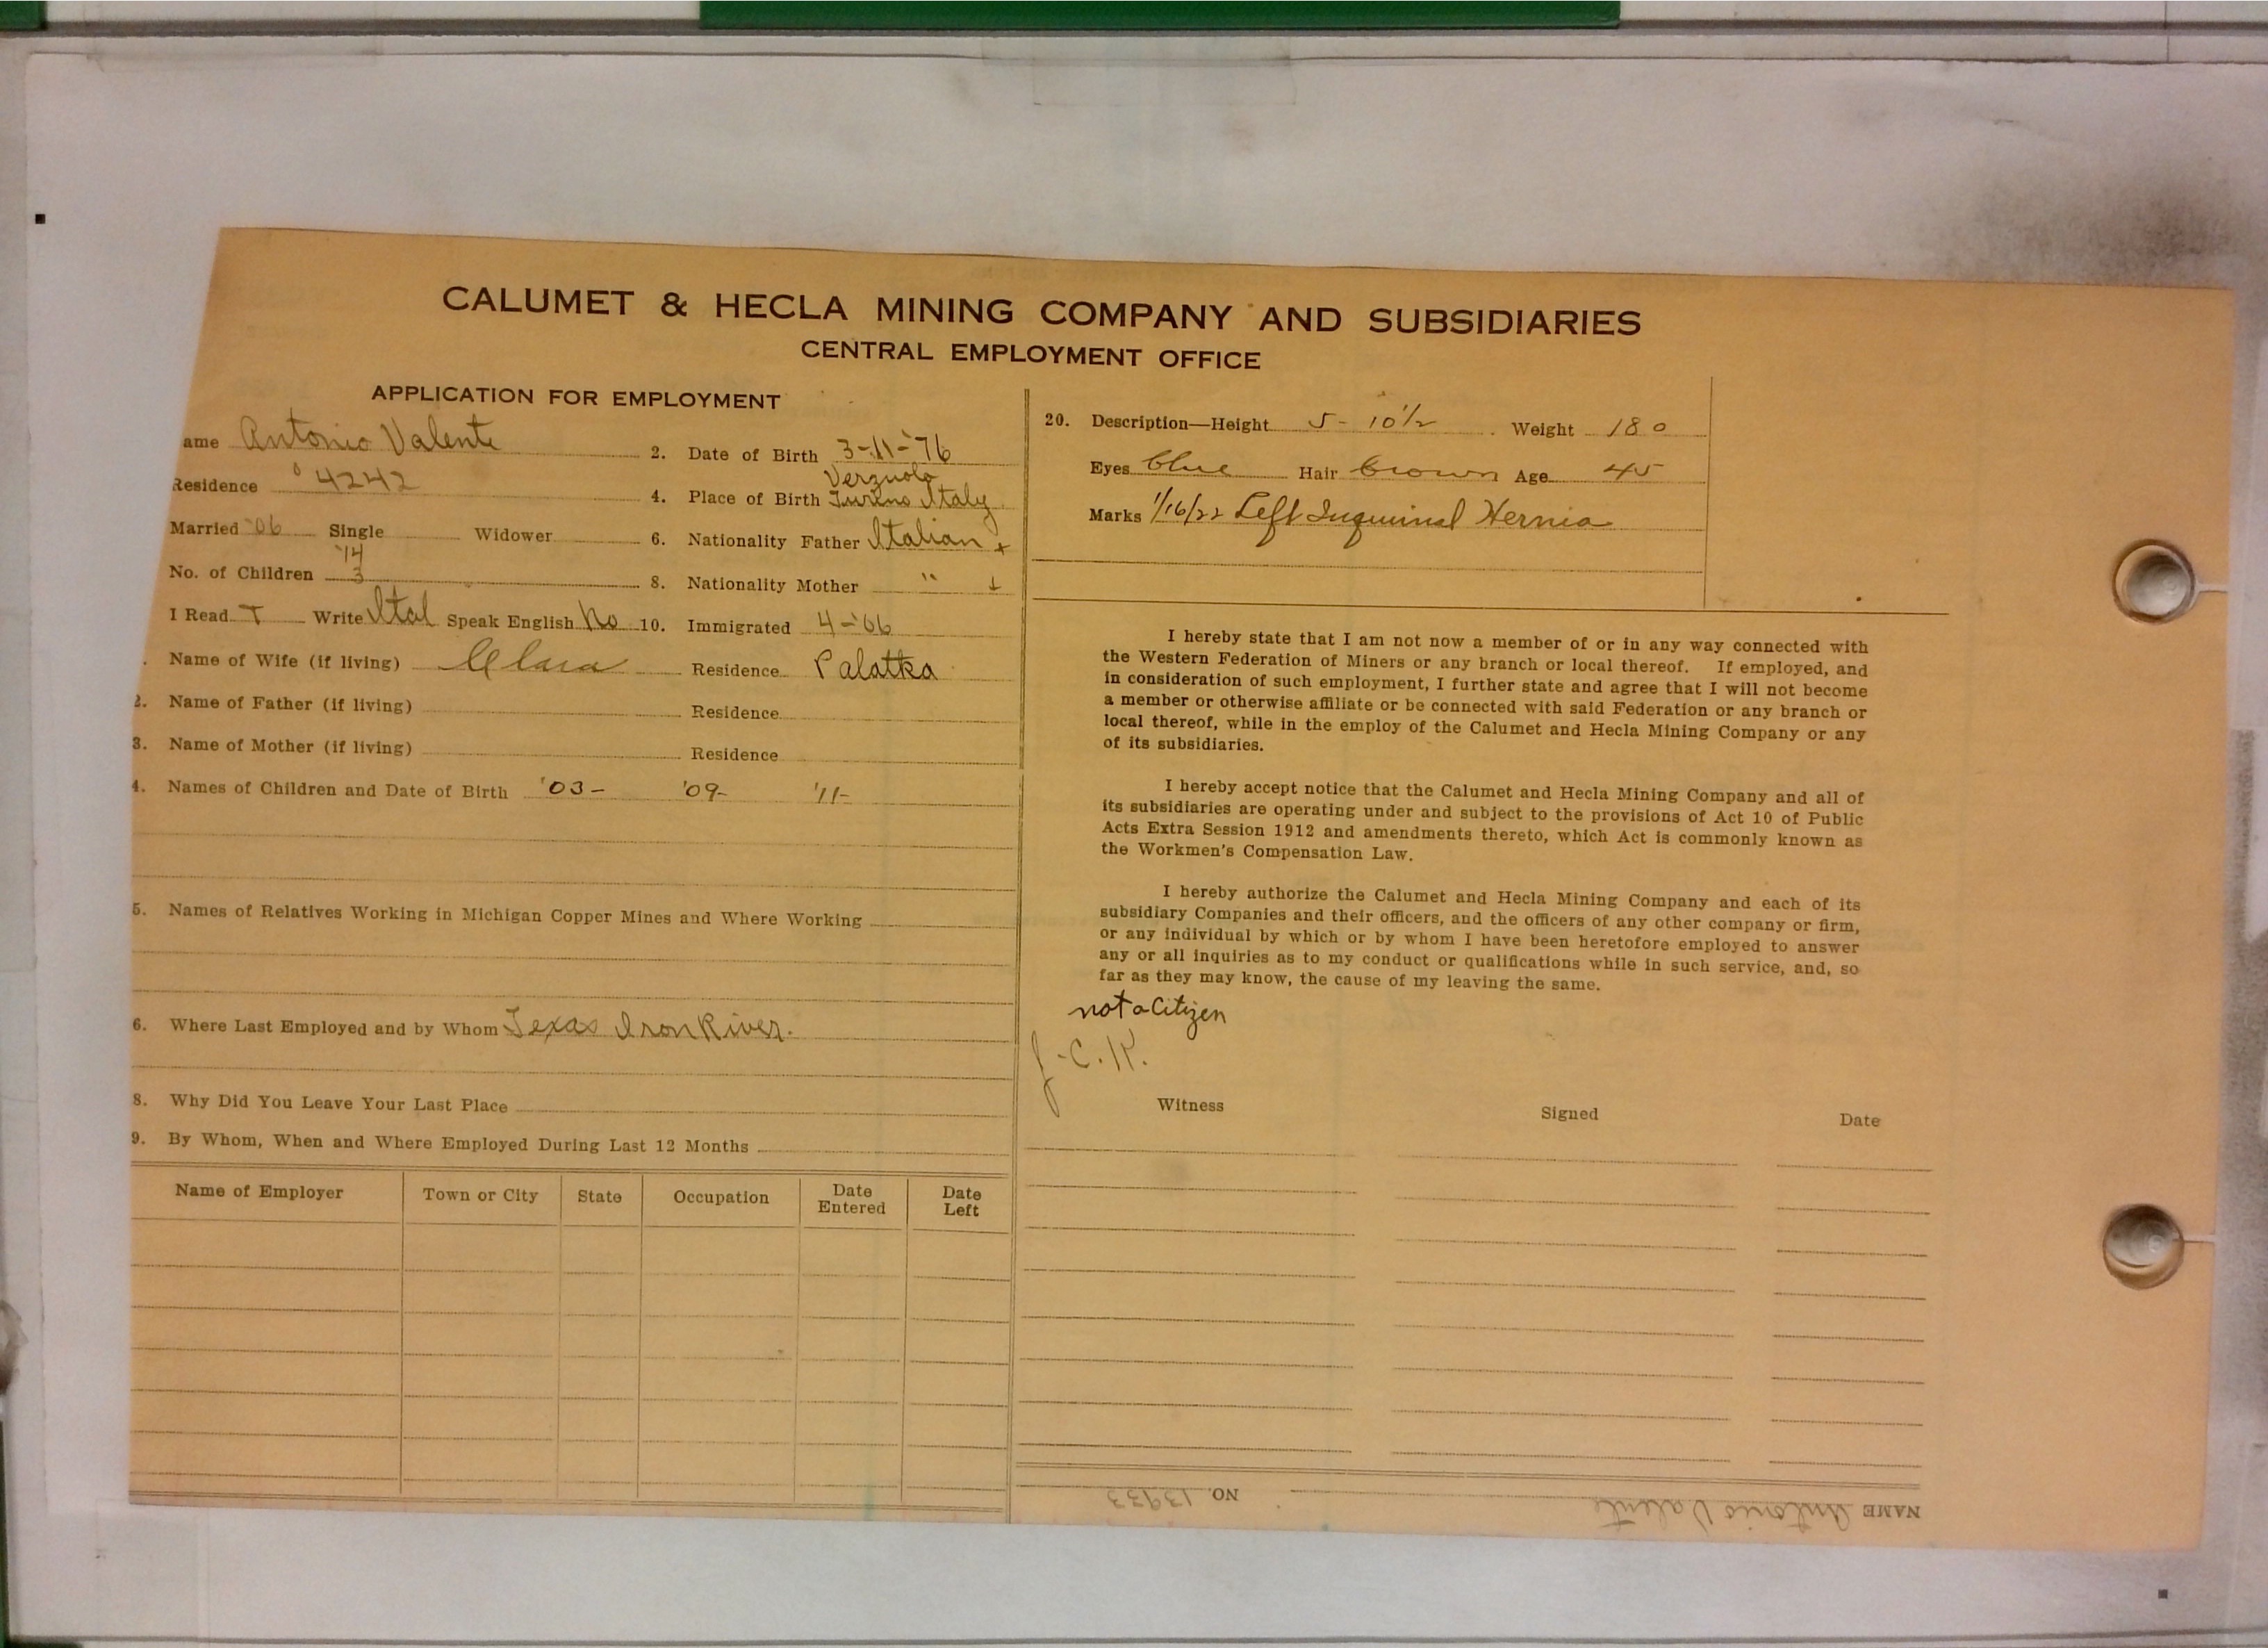 CALUMET & HECLA MINING COMPANY AND SUBSIDIARIES
CENTRAL EMPLOYMENT OFFICE
APPLICATION FOR EMPLOYMENT
ame Antonio Valente 2. Date of Birth 3-11-'76
Residence 4242 4. Place of Birth Verzuolo Turino Italy
Married '06 Single Widower 6. Nationality Father Italian
No. of Children '14 3 8. Nationality Mother "
I Read Write Ital Speak English No 10. Immigrated 4-'06
Name of Wife (if living) Clara Residence Palatka
2. Name of Father (if living) Residence
3. Name of Mother (if living) Residence
4. Names of Children and Date of Birth '03- '09- '11-
5. Names of Relatives Working in Michigan Copper Mines and Where Working
6. Where Last Employed and by Whom Texas Iron River.
8. Why Did You Leave Your Last Place
9. By Whom, When and Where Employed During Last 12 Months
Name of Employer Town or City State Occupation Date Entered Date Left
20. Description—Height 5-10½ Weight 180
Eyes blue Hair brown Age 45
Marks 1/16/22 Left Inguinal Hernia
I hereby state that I am not now a member of or in any way connected with
the Western Federation of Miners or any branch or local thereof. If employed, and
in consideration of such employment, I further state and agree that I will not become
a member or otherwise affiliate or be connected with said Federation or any branch or
local thereof, while in the employ of the Calumet and Hecla Mining Company or any
of its subsidiaries.
I hereby accept notice that the Calumet and Hecla Mining Company and all of
its subsidiaries are operating under and subject to the provisions of Act 10 of Public
Acts Extra Session 1912 and amendments thereto, which Act is commonly known as
the Workmen's Compensation Law.
I hereby authorize the Calumet and Hecla Mining Company and each of its
subsidiary Companies and their officers, and the officers of any other company or firm,
or any individual by which or by whom I have been heretofore employed to answer
any or all inquiries as to my conduct or qualifications while in such service, and, so
far as they may know, the cause of my leaving the same.
not a Citizen
J.C.K.
Witness Signed Date
NAME Antonio Valente NO. 13933